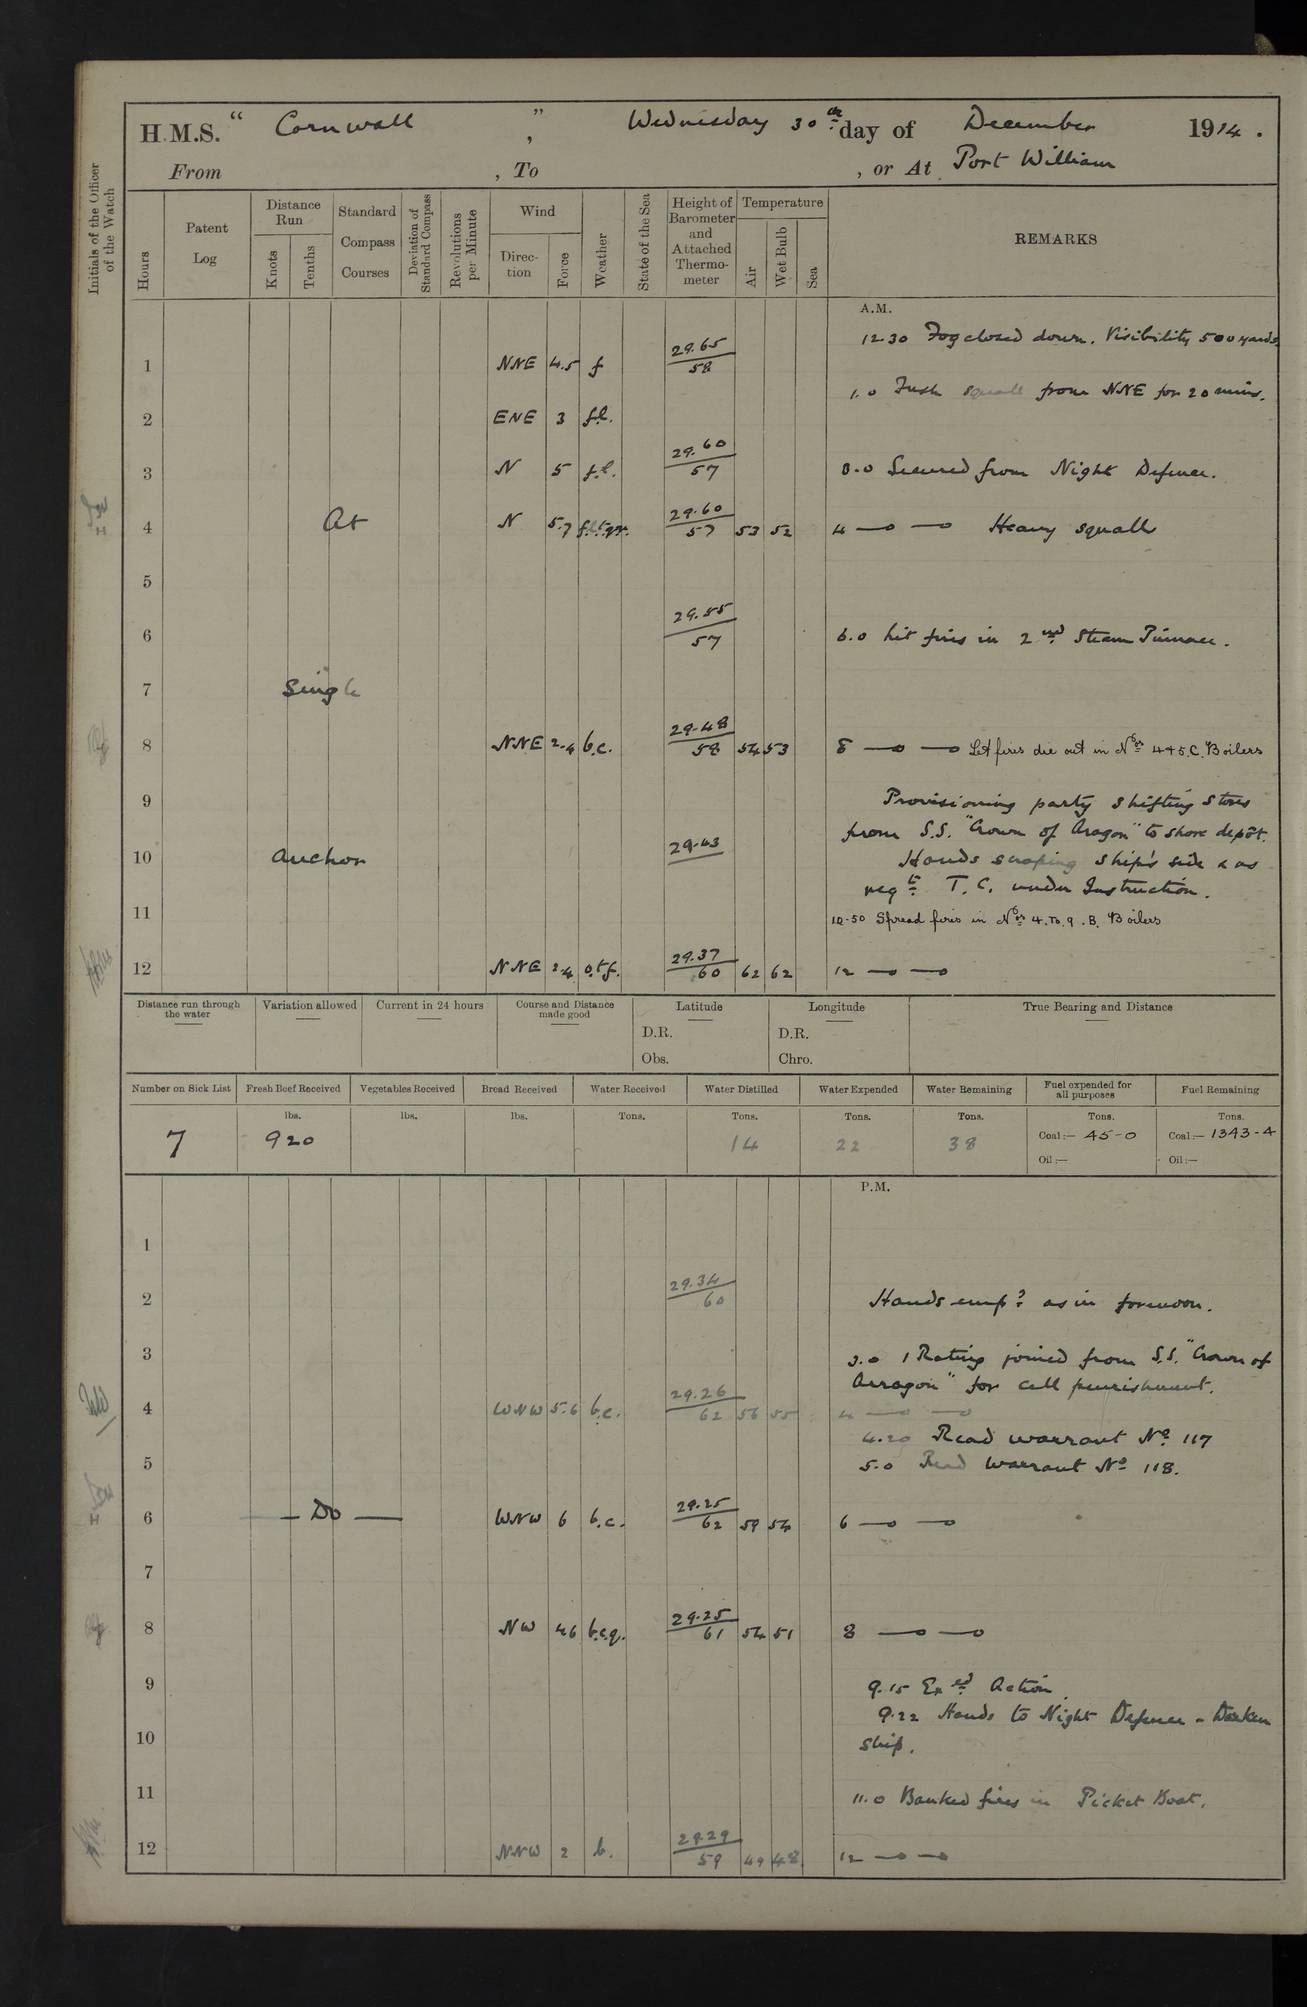 H.M.S. " Cornwall " , Wednesday 30th day of December 1914.
From , To , or At Port William
Initials of the Officer of the Watch
Hours
Patent Log
Distance Run
Knots
Tenths
Standard Compass Courses
Deviation of Standard Compass
Revolutions per Minute
Wind
Direc-tion
Force
Weather
State of the Sea
Height of Barometer and Attached Thermo-meter
Temperature
Air
Wet Bulb
Sea
REMARKS
A.M.
12.30 Fog closed down. Visibility 500 yards.
1 NNE 4.5 f 29.65 58
1.0 Fresh squall from NNE for 20 mins.
2 ENE 3 f.l.
3 N 5 f.l. 29.60 57 3.0 Secured from Night Defence.
4 At N 5.7 29.60 57 53 52 4 —o —o Heavy squalls
5
6 29.55 57 6.0 Lit fires in 2nd Steam Pinnace.
7 Single
8 NNE 2-4 b.c. 29.48 58 54 53 8 —o —o Let fires die out in Nos 4 & 5.C. Boilers
9 Provisioning party shifting stores
from S.S. "Crown of Aragon" to shore depôt.
10 anchor 29.43 Hands scraping ship's side & as
reqt. T.C. under Instruction.
11 10-50 Spread fires in Nos 4. To. 9. B. Boilers
12 NNE 2.4 o.t.f. 29.37 60 62 62 12 —o —o
Distance run through the water
Variation allowed
Current in 24 hours
Course and Distance made good
Latitude
D.R.
Obs.
Longitude
D.R.
Chro.
True Bearing and Distance
Number on Sick List
Fresh Beef Received
Vegetables Received
Bread Received
Water Received
Water Distilled
Water Expended
Water Remaining
Fuel expended for all purposes
Fuel Remaining
lbs. lbs. lbs. Tons. Tons. Tons. Tons. Tons. Tons.
7 920 14 22 38 Coal:— 45-0 Coal:— 1343-4
Oil:— Oil:—
P.M.
1
2 29.34 60 Hands empd. as in forenoon.
3 3.0 1 Rating joined from S.S. "Crown of
Arragon" for cell punishment.
4 WNW 5.6 b.c. 29.26 62 56 55 4 —o —o
4.20 Read warrant No. 117
5 5.0 Read warrant No. 118.
6 — Do — WNW 6 b.c. 29.25 62 59 54 6 —o —o
7
8 NW 46 b.c.q. 29.25 61 54 51 8 —o —o
9 9.15 Exed. Action.
9.22 Hands to Night Defence - Darken
10 ship.
11 11.0 Banked fires in Picket Boat.
12 NNW 2 b. 29.29 59 49 48 12 —o —o